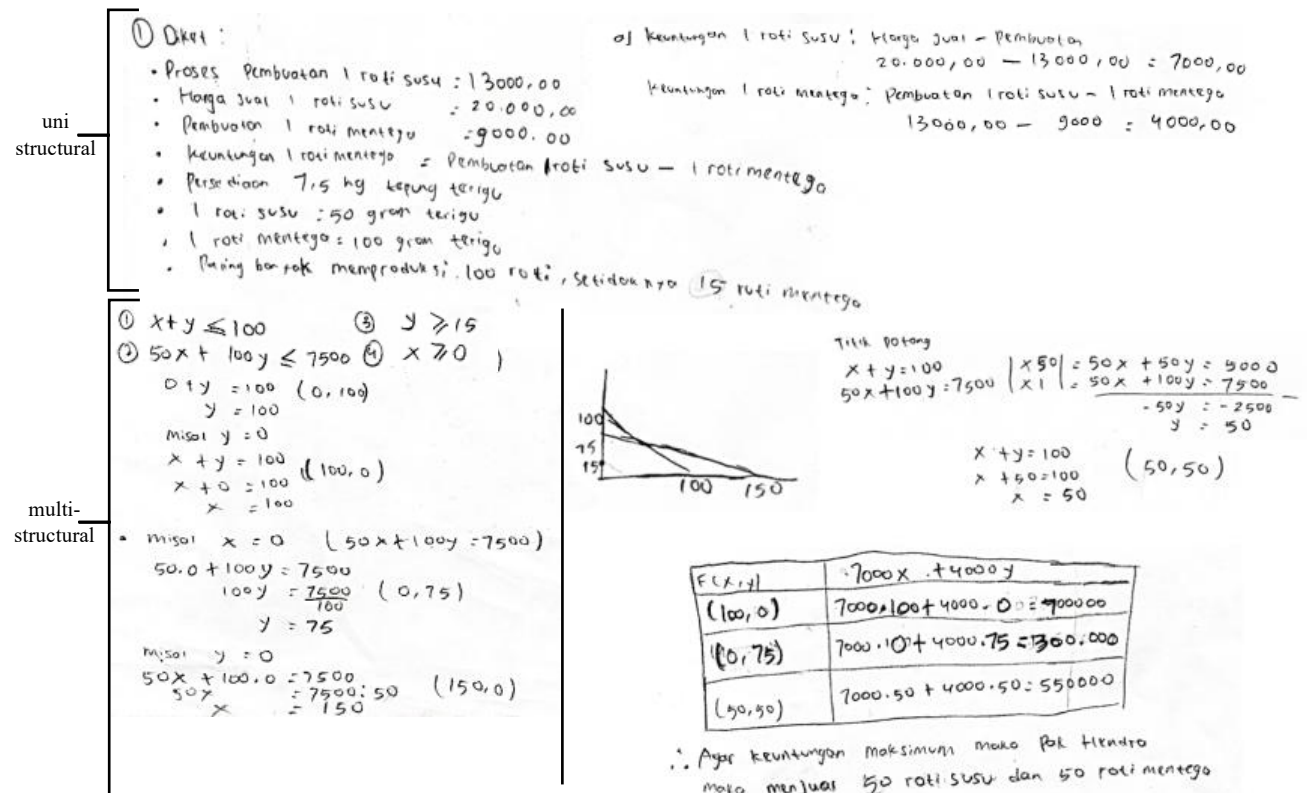 uni
structural
① Diket :
• Proses Pembuatan 1 roti susu : 13000,00
• Harga Jual 1 roti susu : 20.000,00
• Pembuatan 1 roti mentega : 9000.00
• keuntungan 1 roti mentega = Pembuatan 1 roti susu – 1 roti mentega
• Persediaan 7,5 kg tepung terigu
• 1 roti susu : 50 gram terigu
• 1 roti mentega : 100 gram terigu
• Paling banyak memproduksi 100 roti, setidaknya 15 roti mentega
a) keuntungan 1 roti susu : Harga Jual – Pembuatan
20.000,00 – 13000,00 : 7000,00
keuntungan 1 roti mentega : Pembuatan 1 roti susu – 1 roti mentega
13000,00 – 9000 : 4000,00
multi-
structural
① x+y ≤ 100 ③ y ≥ 15
② 50x + 100y ≤ 7500 ④ x ≥ 0 )
0+y = 100 (0,100)
y = 100
misal y = 0
x + y = 100 (100,0)
x + 0 = 100
x = 100
• misal x = 0 (50x+100y=7500)
50.0 + 100y = 7500
100y = 7500/100 (0,75)
y = 75
misal y = 0
50x + 100.0 = 7500
50x = 7500:50 (150,0)
x = 150
100
75
15
100 150
Titik potong
x + y = 100 |x50| = 50x + 50y = 5000
50x+100y=7500 |x1| = 50x + 100y = 7500 –
-50y = -2500
y = 50
x + y = 100
x + 50 = 100 (50,50)
x = 50
F(x,y) 7000x + 4000y
(100,0) 7000.100 + 4000.0 = 700000
(0,75) 7000.10 + 4000.75 = 300.000
(50,50) 7000.50 + 4000.50 = 550000
∴ Agar keuntungan maksimum maka Pak Hendro
maka menjual 50 roti susu dan 50 roti mentega